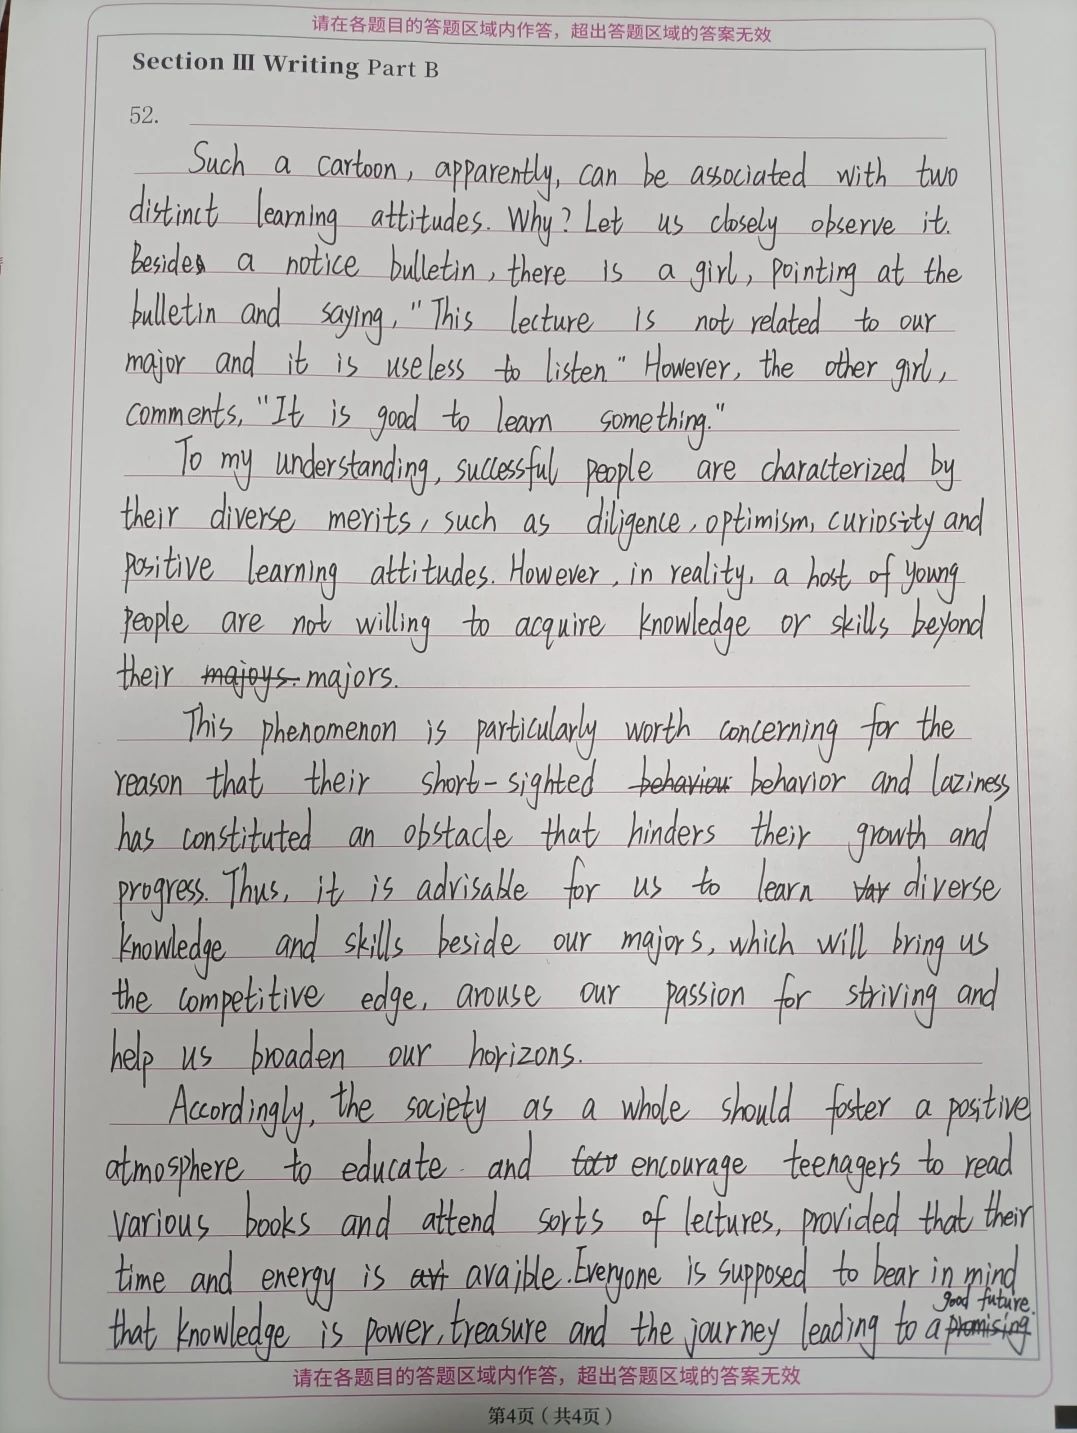 请在各题目的答题区域内作答，超出答题区域的答案无效
Section Ⅲ Writing Part B
52.
Such a cartoon, apparently, can be associated with two
distinct learning attitudes. Why? Let us closely observe it.
Besides a notice bulletin, there is a girl, pointing at the
bulletin and saying, "This lecture is not related to our
major and it is useless to listen." However, the other girl,
comments, "It is good to learn something."
To my understanding, successful people are characterized by
their diverse merits, such as diligence, optimism, curiosity and
positive learning attitudes. However, in reality, a host of young
people are not willing to acquire knowledge or skills beyond
their majoys. majors.
This phenomenon is particularly worth concerning for the
reason that their short-sighted behaviou behavior and laziness
has constituted an obstacle that hinders their growth and
progress. Thus, it is advisable for us to learn var diverse
knowledge and skills beside our majors, which will bring us
the competitive edge, arouse our passion for striving and
help us broaden our horizons.
Accordingly, the society as a whole should foster a positive
atmosphere to educate and encourage teenagers to read
various books and attend sorts of lectures, provided that their
time and energy is avaible. Everyone is supposed to bear in mind
good future.
that knowledge is power, treasure and the journey leading to a promising
请在各题目的答题区域内作答，超出答题区域的答案无效
第4页（共4页）